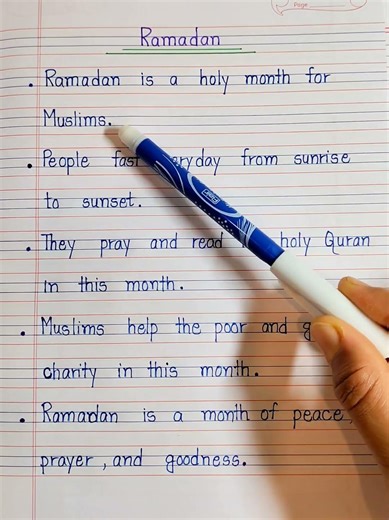 Page
Ramadan
• Ramadan is a holy month for
Muslims.
• People fast everyday from sunrise
to sunset.
• They pray and read holy Quran
in this month.
• Muslims help the poor and
charity in this month.
• Ramadan is a month of peace,
prayer, and goodness.